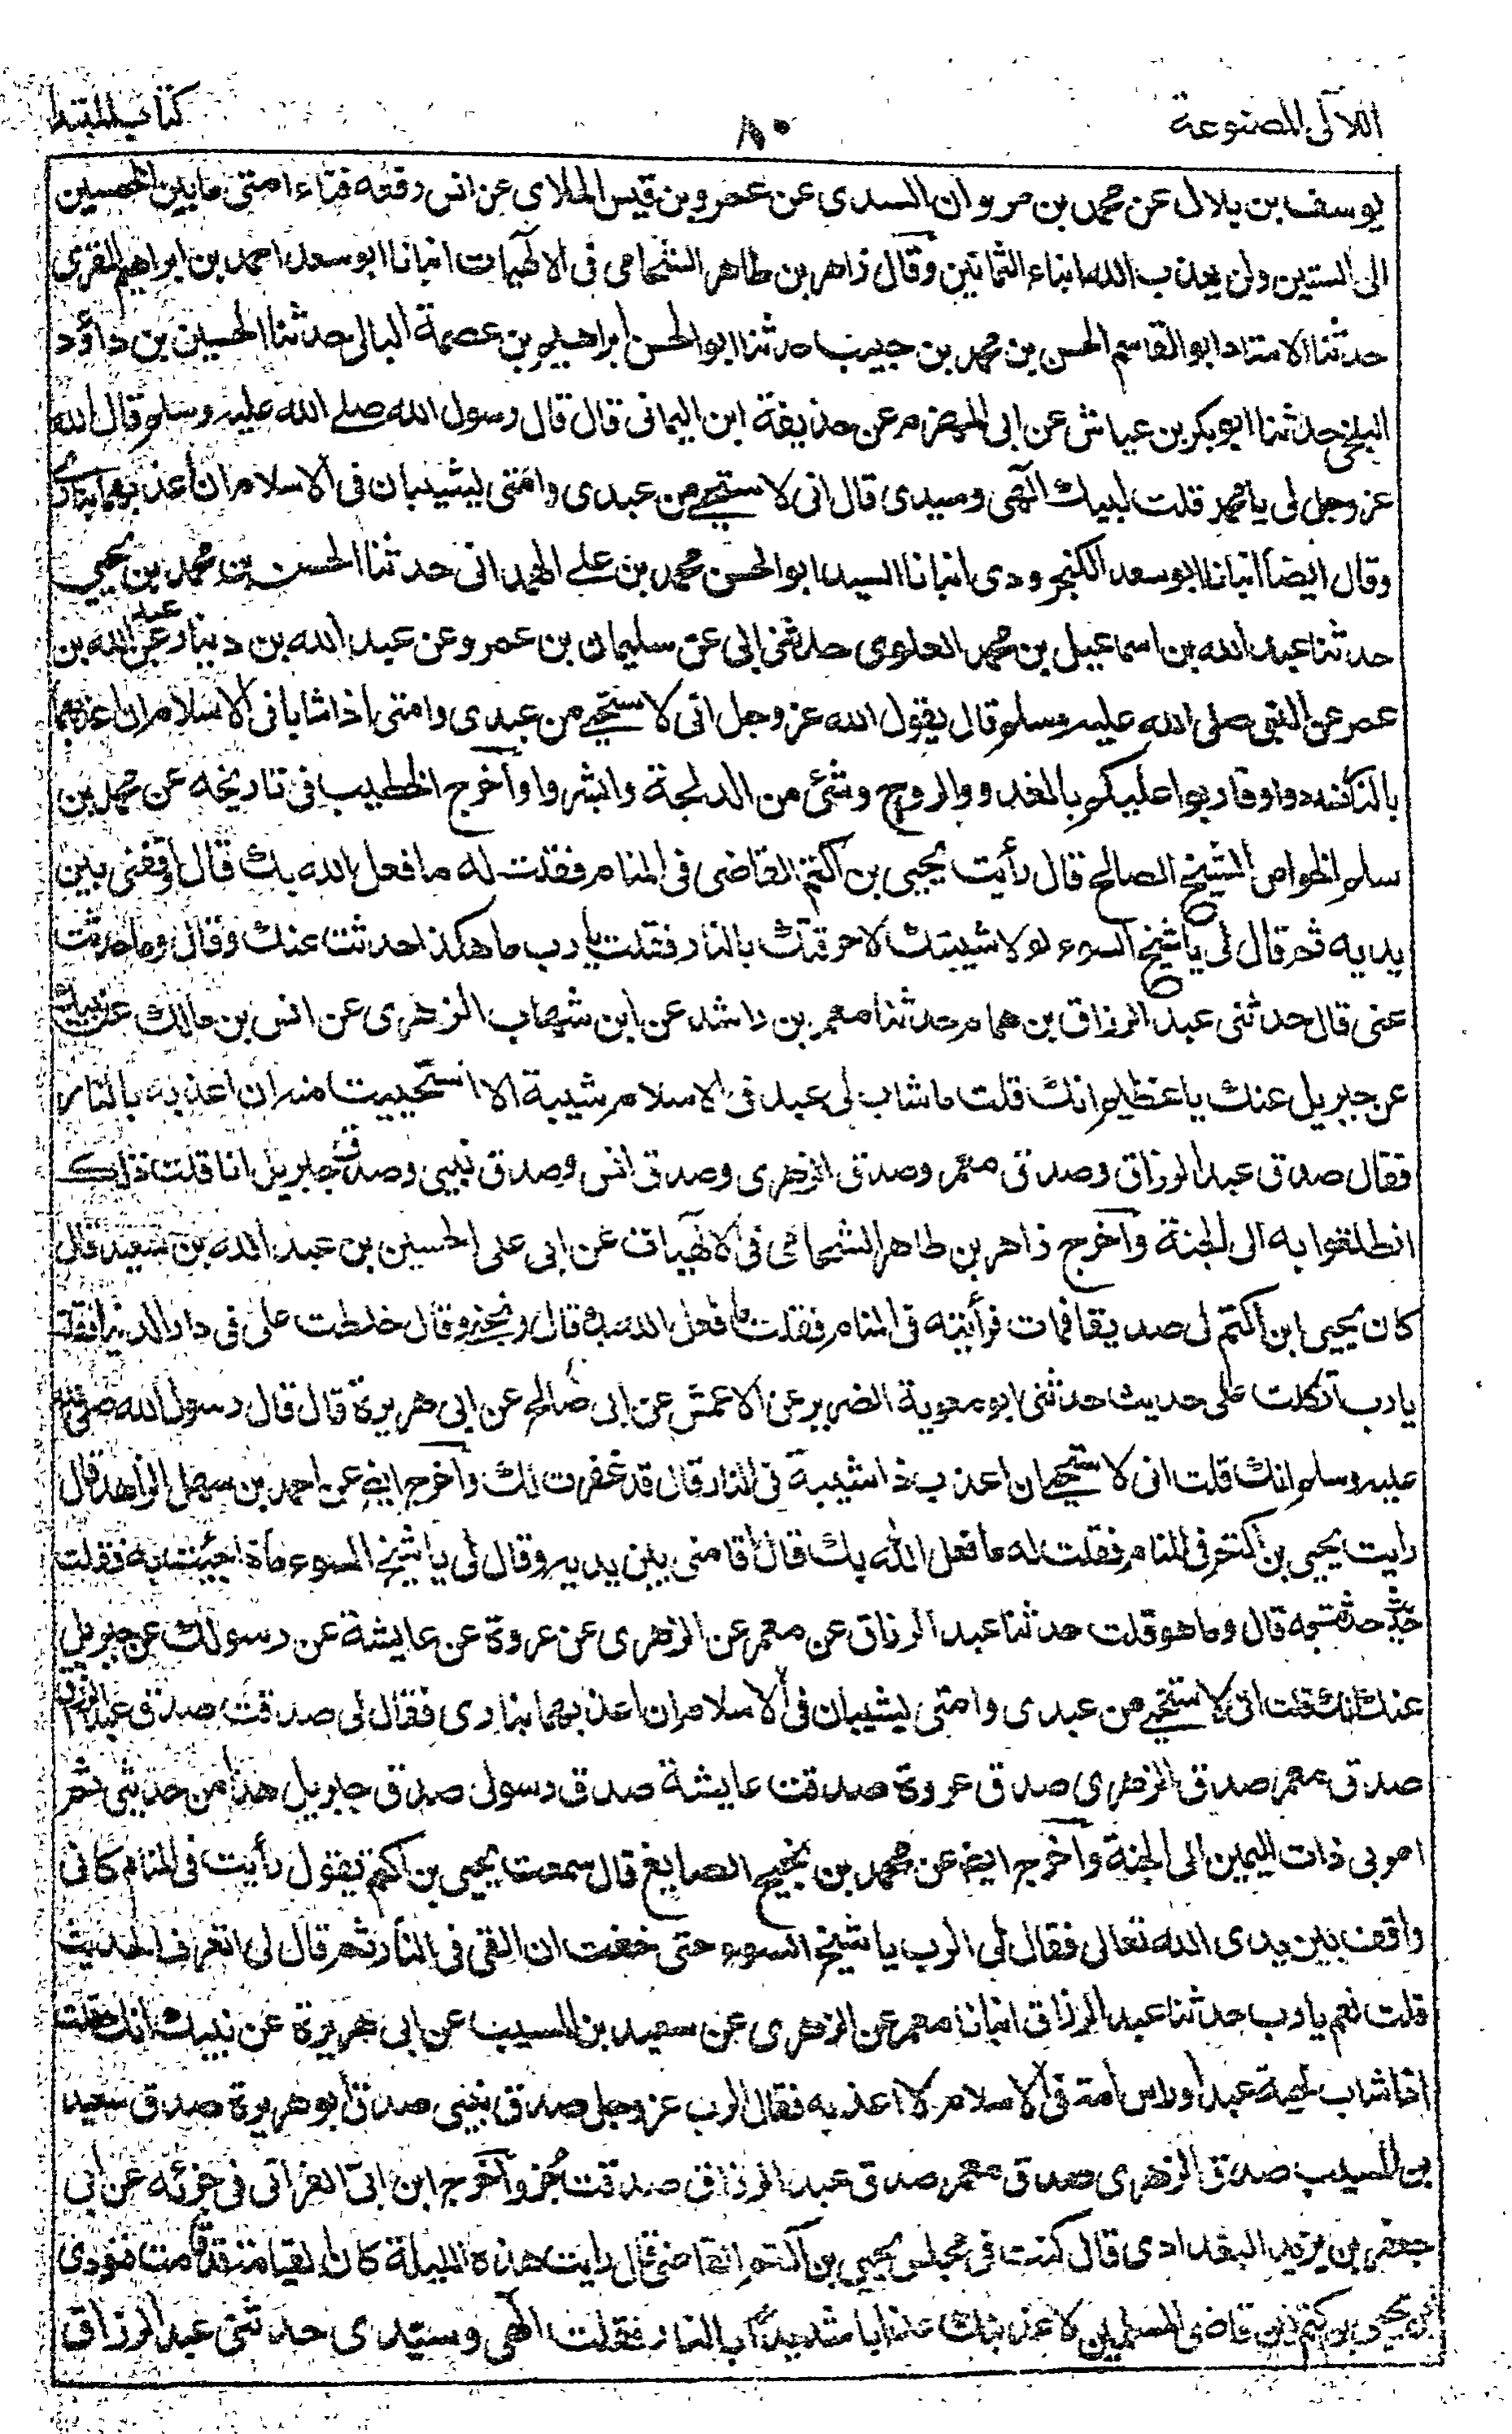 اللآلی المصنوعة ٨٠ کتاب المبتدا
یوسف بن بلال عن محمد بن مروان السدی عن عمرو بن قیس الملای عن انس رفعه فناء امتی مابین الخمسین
الی الستین ولن یعذب الله ابناء الثمانین وقال زاهر بن طاهر الشحامی فی الالٰهیات انبانا ابو سعد احمد بن ابراهیم المقری
حدثنا الاستاد ابو القاسم الحسن بن محمد بن حبیب حدثنا ابو الحسن ابراهیم بن عصمة البالی حدثنا الحسین بن داؤد
البلخی حدثنا ابو بکر بن عیاش عن ابی المهزم عن حذیفة ابن الیمانی قال قال رسول الله صلے الله علیه وسلم قال الله
عز وجل لی یا محمد قلت لبیک الٰهی وسیدی قال انی لاستحیے من عبدی وامتی یشیبان فی الاسلام ان اعذبهما بناری
وقال ایضا انبانا ابو سعد الکنجرودی انبانا السید ابو الحسن محمد بن علے الهمدانی حدثنا الحسن بن محمد بن یحیی
حدثنا عبد الله بن اسماعیل بن محمد العلوی حدثنی ابی عن سلیمان بن عمرو عن عبد الله بن دینار عن عبد الله بن
عمر عن النبی صلی الله علیه وسلم قال یقول الله عز وجل انی لاستحیے من عبدی وامتی اذا شابا فی الاسلام ان اعذبهما
بالنار فسددوا وقاربوا علیکم بالغدو والروح وشئ من الدلجة وابشروا وآخرج الخطیب فی تاریخه عن محمد بن
سلم الخواص الشیخ الصالح قال رأیت یحیی بن اکثم القاضی فی المنام فقلت له ما فعل الله بک قال اوقفنی بین
یدیه ثم قال لی یا شیخ السوء لولا شیبتک لاحرقتک بالنار فقلت یا رب ما هکذا حدثت عنک وقال وما حدثت
عنی قال حدثنی عبد الرزاق بن همام حدثنا معمر بن راشد عن ابن شهاب الزهری عن انس بن مالک عن نبیک
عن جبریل عنک یا عظیم انک قلت ما شاب لی عبد فی الاسلام شیبة الا استحییت منه ان اعذبه بالنار
فقال صدق عبد الرزاق وصدق معمر وصدق الزهری وصدق انس وصدق نبیی وصدق جبریل انا قلت ذلک
انطلقوا به الی الجنة وآخرج زاهر بن طاهر الشحامی فی الالٰهیات عن ابی علی الحسین بن عبد الله بن سعید قال
کان یحیی ابن اکثم لی صدیقا فمات فرأیته فی المنام فقلت ما فعل الله بک قال وبخنی وقال خلطت علی فی دار الدنیا فقلت
یا رب اتکلت علی حدیث حدثنی ابو معویة الضریر عن الاعمش عن ابی صالح عن ابی هریرة قال قال رسول الله صلی الله
علیه وسلم انک قلت انی لاستحیے ان اعذب ذا شیبة فی النار قال قد غفرت لک وآخرج ایضا عن احمد بن سهل الزاهد قال
رایت یحیی بن اکثم فی المنام فقلت له ما فعل الله بک قال اقامنی بین یدیه وقال لی یا شیخ السوء ما ذا جیئت به فقلت
قال وما هو قلت حدثنا عبد الرزاق عن معمر عن الزهری عن عروة عن عایشة عن رسولک عن جبریل
عنک انک قلت انی لاستحیے من عبدی وامتی یشیبان فی الاسلام ان اعذبهما بناری فقال لی صدقت صدق عبد الرزاق
صدق معمر صدق الزهری صدق عروة صدقت عایشة صدق رسولی صدق جبریل هذا من حدیثی ثم
امر بی ذات الیمین الی الجنة وآخرج ایضا عن محمد بن نجیح الصایغ قال سمعت یحیی بن اکثم یقول رأیت فی المنام کانی
واقف بین یدی الله تعالی فقال لی الرب یا شیخ السوء حتی خفت ان القی فی النار ثم قال لی اتعرف الحدیث
قلت نعم یا رب حدثنا عبد الرزاق انبانا معمر عن الزهری عن سعید بن المسیب عن ابی هریرة عن نبیک انک قلت
اذا شاب لحیة عبد او راس امة فی الاسلام لا اعذبه فقال الرب عز وجل صدق نبیی صدق ابو هریرة صدق سعید
بن المسیب صدق الزهری صدق معمر صدق عبد الرزاق صدقت جُز وآخرج ابن ابی الفراتی فی جزئه عن ابی
جعفر بن یزید البغدادی قال کنت فی مجلس یحیی بن اکثم القاضی قال رایت هذه اللیلة کان القیامة قد قامت فنودی
این یحیی بن اکثم این قاضی المسلمین لاعذبنک عذابا شدیداً بالنار فقلت الٰهی وسیّدی حدثنی عبد الرزاق